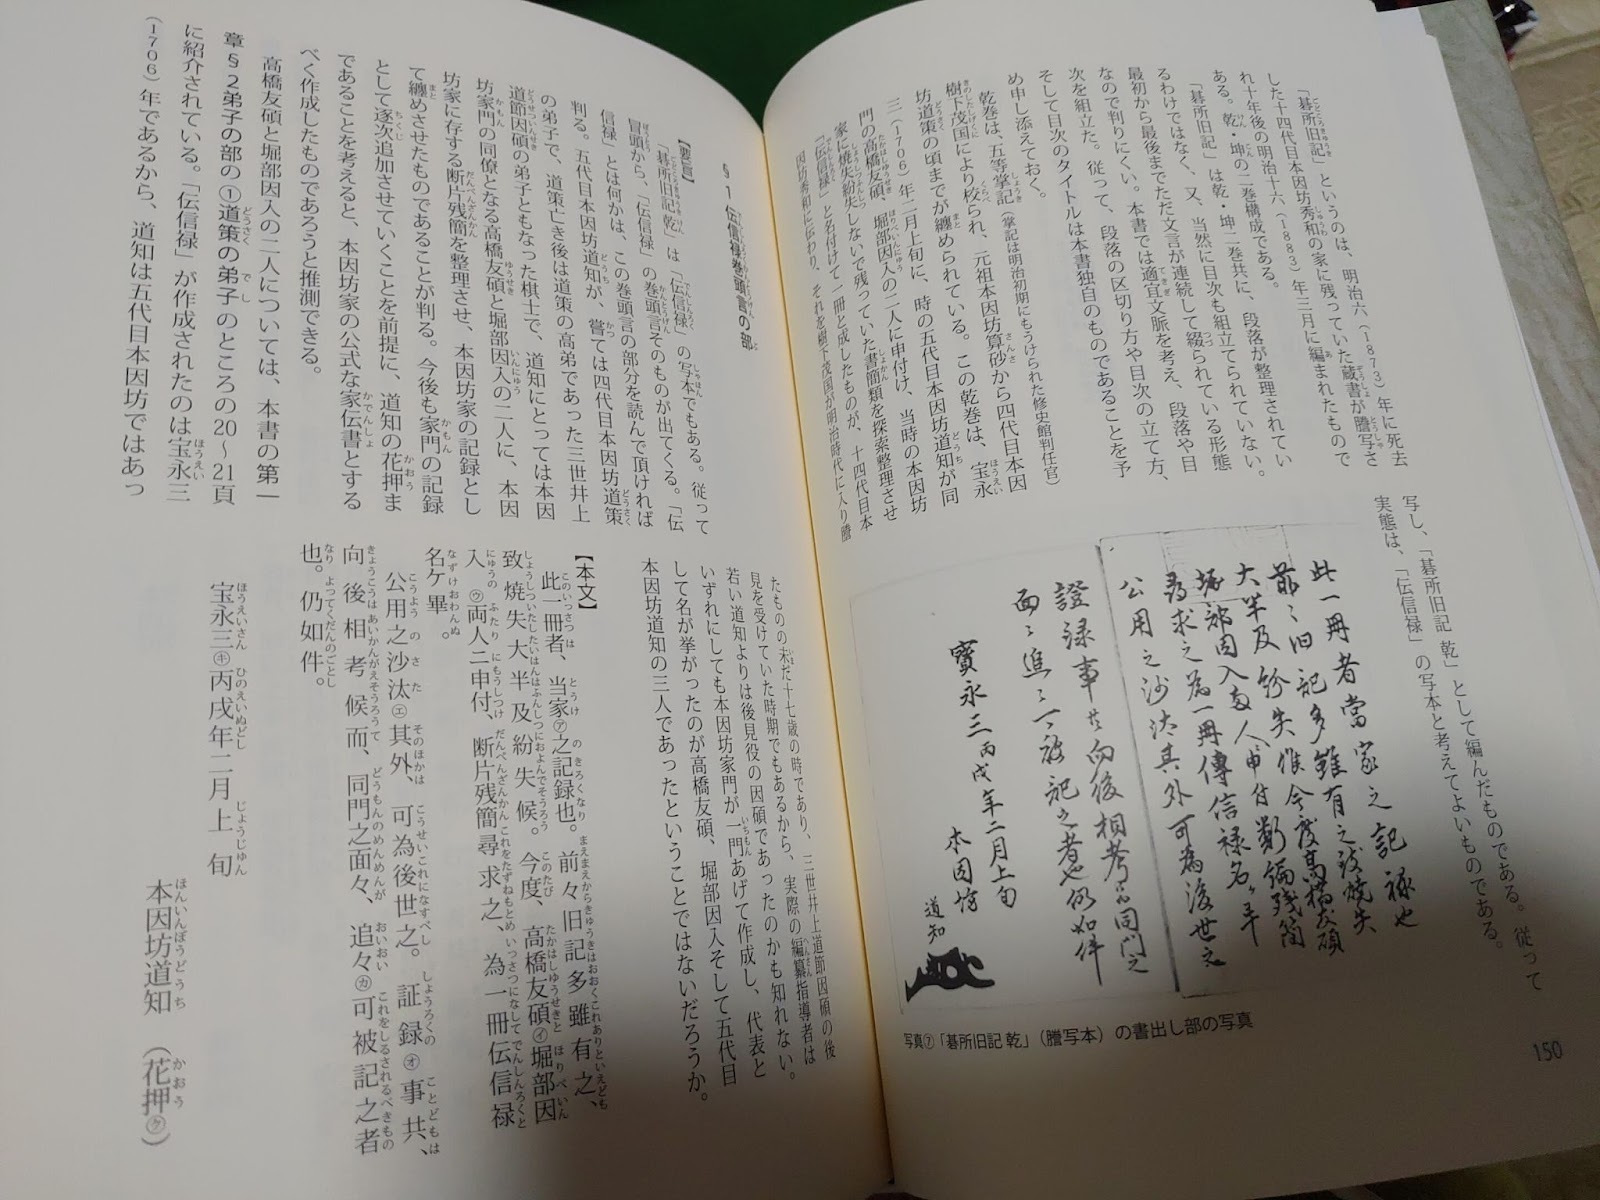 「碁所旧記」というのは、明治六（1873）年に死去
した十四代目本因坊秀和の家に残っていた蔵書が謄写さ
れ十年後の明治十六（1883）年三月に編まれたもので
ある。乾・坤の二巻構成である。
「碁所旧記」は乾・坤二巻共に、段落が整理されてい
るわけではなく、又、当然に目次も組立てられていない。
最初から最後までただ文言が連続して綴られている形態
なので判りにくい。本書では適宜文脈を考え、段落や目
次を組立た。従って、段落の区切り方や目次の立て方、
そして目次のタイトルは本書独自のものであることを予
め申し添えておく。
乾巻は、五等掌記（掌記は明治初期にもうけられた修史館判任官）
樹下茂国により校られ、元祖本因坊算砂から四代目本因
坊道策の頃までが纏められている。この乾巻は、宝永
三（1706）年二月上旬に、時の五代目本因坊道知が同
門の高橋友碩、堀部因入の二人に申付け、当時の本因坊
家に焼失紛失しないで残っていた書簡類を探索整理させ
「伝信禄」と名付けて一冊と成したものが、十四代目本
因坊秀和に伝わり、それを樹下茂国が明治時代に入り謄
写し、「碁所旧記 乾」として編んだものである。従って
実態は、「伝信禄」の写本と考えてよいものである。
此一冊者當家之記禄也
前々旧記多雖有之致焼失
大半及紛失候今度高橋友碩
堀部因入両人申付断編残簡
尋求之為一冊傳信禄名ケ畢
公用之沙汰其外可為後世之
證録事共向後相考而同門之
面々追々可被記之者也仍如件
寳永三丙戌年二月上旬
本因坊
道知
写真⑦「碁所旧記 乾」（謄写本）の書出し部の写真
150
§1 伝信禄巻頭言の部
【要旨】
「碁所旧記 乾」は「伝信禄」の写本でもある。従って
冒頭から、「伝信禄」の巻頭言そのものが出てくる。「伝
信禄」とは何かは、この巻頭言の部分を読んで頂ければ
判る。五代目本因坊道知が、嘗ては四代目本因坊道策
の弟子で、道策亡き後は道策の高弟であった三世井上
道節因碩の弟子ともなった棋士で、道知にとっては本因
坊家門の同僚となる高橋友碩と堀部因入の二人に、本因
坊家に存する断片残簡を整理させ、本因坊家の記録とし
て纏めさせたものであることが判る。今後も家門の記録
として逐次追加させていくことを前提に、道知の花押ま
であることを考えると、本因坊家の公式な家伝書とする
べく作成したものであろうと推測できる。
高橋友碩と堀部因入の二人については、本書の第一
章§2弟子の部の①道策の弟子のところの20〜21頁
に紹介されている。「伝信禄」が作成されたのは宝永三
（1706）年であるから、道知は五代目本因坊ではあっ
たものの未だ十七歳の時であり、三世井上道節因碩の後
見を受けていた時期でもあるから、実際の編纂指導者は
若い道知よりは後見役の因碩であったのかも知れない。
いずれにしても本因坊家門が一門あげて作成し、代表と
して名が挙がったのが高橋友碩、堀部因入そして五代目
本因坊道知の三人であったということではないだろうか。
【本文】
此一冊者、当家㋐之記録也。前々旧記多雖有之、
致焼失大半及紛失候。今度、高橋友碩㋑堀部因
入㋒両人二申付、断片残簡尋求之、為一冊伝信禄
名ケ畢。
公用之沙汰㋓其外、可為後世之。証録㋔事共、
向後相考候而、同門之面々、追々㋕可被記之者
也。仍如件。
宝永三㋖丙戌年二月上旬
本因坊道知（花押㋗）